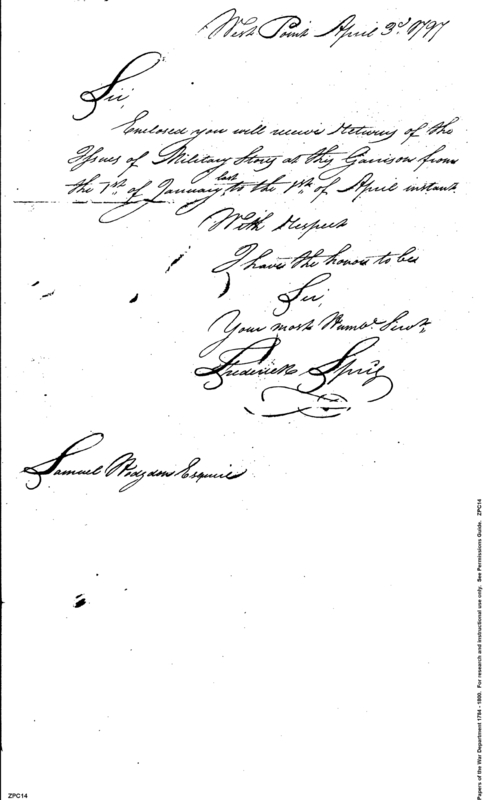 West Point April 3d. 1797
Sir,
Enclosed you will receive Returns of the
Issues of Military Stores at this Garrison from
the 1st. of January last to the 1st. of April instant.
With Respect
I have the honour to be
Sir,
Your most Humbe. Servt.
Frederick Spriz
Samuel Hodgdon Esquire
Papers of the War Department 1784 - 1800. For research and instructional use only. See Permissions Guide. ZPC14
ZPC14